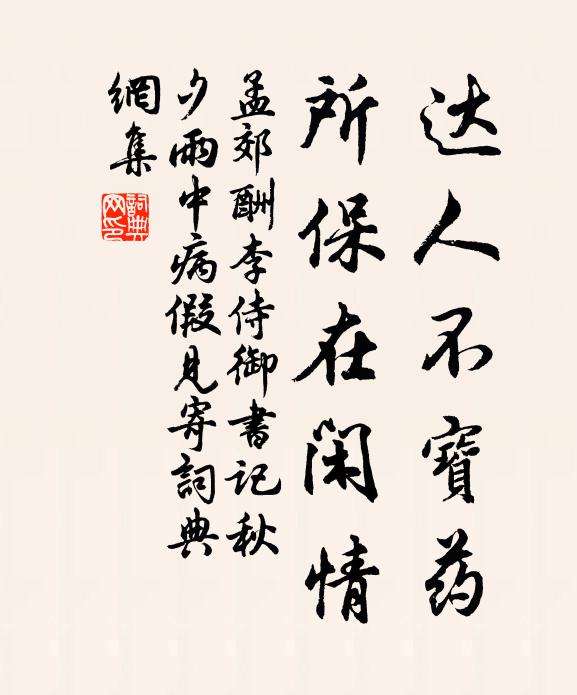 达人不寶药
所保在闲情
孟郊酬李侍御書记秋
夕雨中病假见寄詞典
網集
詞典
网印